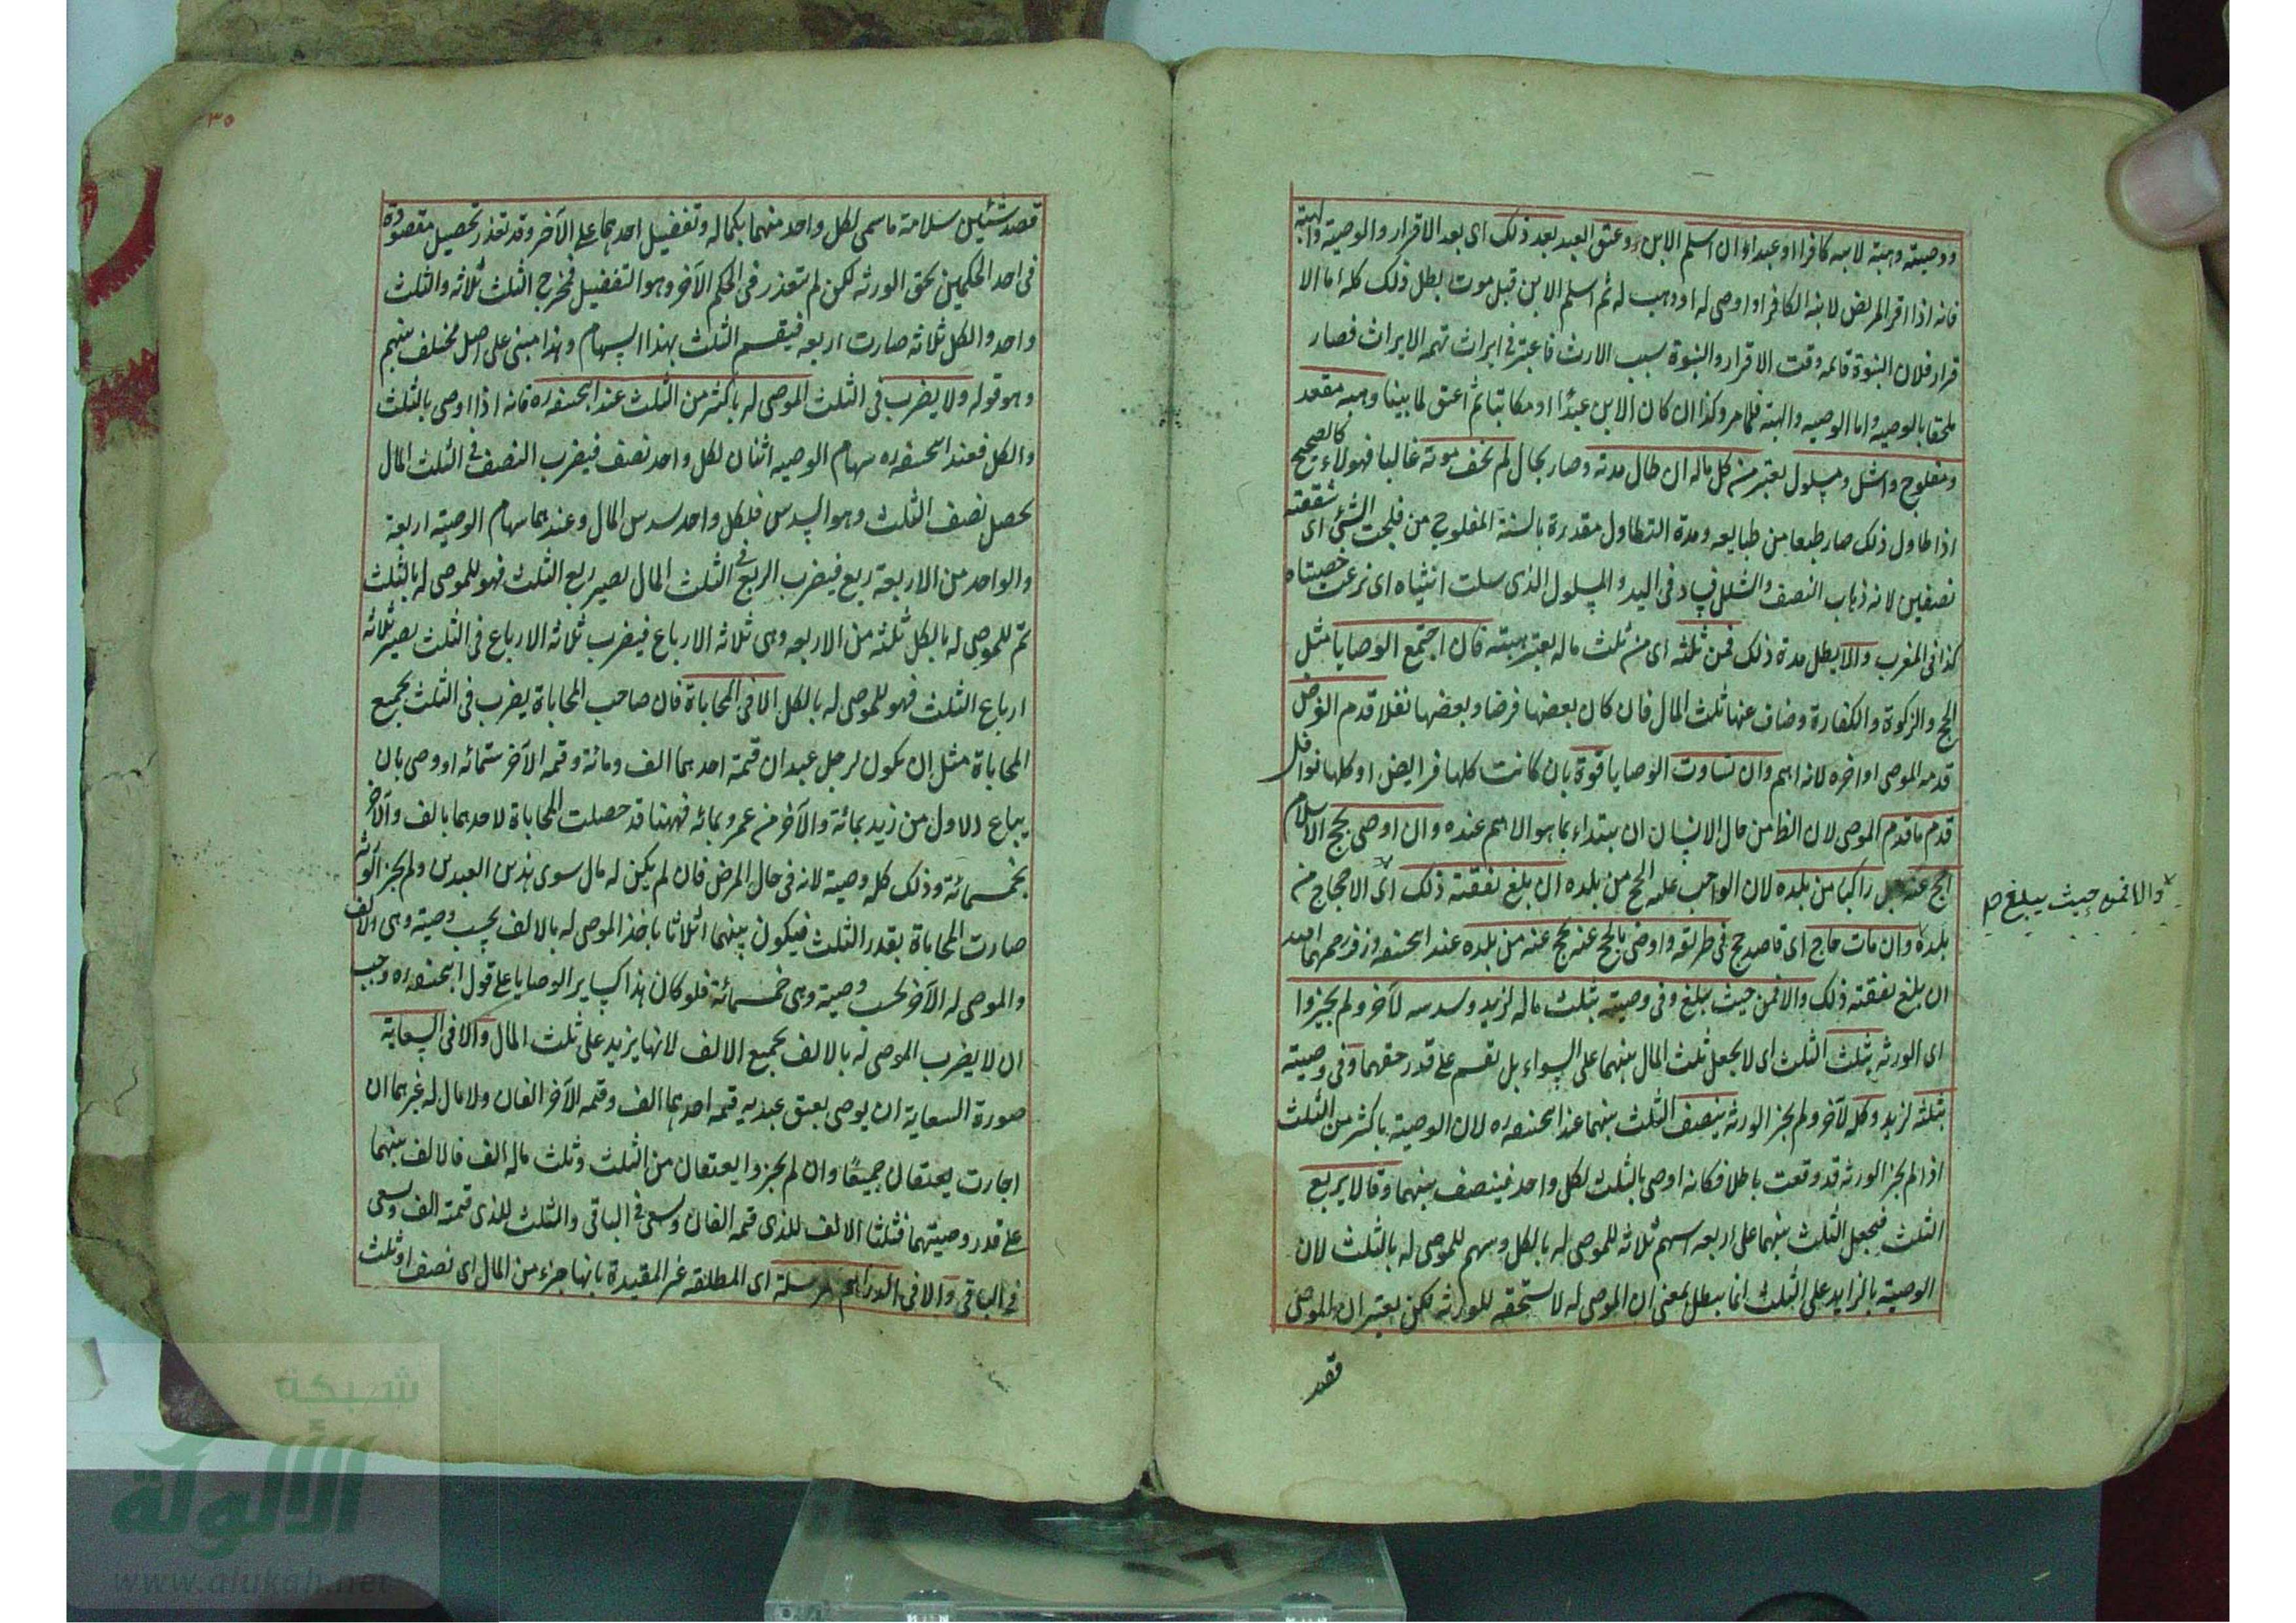 ووصيته وهبته لابنه كافرا او عبدا ان اسلم الابن وعتق العبد بعد ذلك اى بعد الاقرار والوصية والهبة
فانه اذا اقر المريض لابنه الكافر او اوصى له او وهب له ثم اسلم الابن قبل موت بطل ذلك كله اما الا
قرار فلان البنوة قائمه وقت الاقرار والبنوة سبب الارث فاعتبر فى ايراث تهمه الايراث فصار
ملحقا بالوصيه واما الوصيه والهبة فلما مر وكذا ان كان الابن عبدا او مكاتبا ثم اعتق لما بينا وهبه مقعد
ومفلوج واشل ومسلول يعتبر من كل ماله ان طال مدته وصار بحال لم يخف موته غالبا فهولاء كالصحيح
اذا طاول ذلك صار طبعا من طبايعه ومدة التطاول مقدرة بالسنة المفلوج من فلجت الشئ اى شققته
نصفين لانه ذهاب النصف والشلل فساد فى اليد والمسلول الذى سلت انثياه اى نزعت خصيتاه
كذا فى المغرب والا يطل مدة ذلك فمن ثلثه اى من ثلث ماله يعتبر هبته فان اجتمع الوصايا مثل
الحج والزكوة والكفارة وضاق عنها ثلث المال فان كان بعضها فرضا وبعضها نفلا قدم الفرض
قدمه الموصى او اخره لانه اهم وان تساوت الوصايا قوة بان كانت كلها فرايض او كلها نوافل
قدم ما قدم الموصى لان الظ من حال الانسان ان يبتداء بما هو الاهم عنده وان اوصى بحج الاسلام
احج عنه راكبا من بلده لان الواجب عليه الحج من بلده ان بلغ نفقته ذلك اى الاحجاج من
والا فمن حيث يبلغ صح
بلده وان مات حاج اى قاصد حج فى طريقه واوصى بالحج عنه يحج عنه من بلده عند ابيحنيفه وزفر رحمهما
ان بلغ نفقته ذلك والا فمن حيث يبلغ وفى وصيته بثلث ماله لزيد وسدسه لآخر ولم يجيزوا
اى الورثه يثلث الثلث اى لا يجعل ثلث المال بينهما على السواء بل يقسم على قدر حقهما وفى وصيته
بثلثه لزيد وكله لآخر ولم يجز الورثه ينصف الثلث بينهما عند ابيحنيفه ره لان الوصية باكثر من الثلث
اذا لم يجز الورثه قد وقعت باطلا فكانه اوصى بالثلث لكل واحد فينصف بينهما وقالا يربع
الثلث فيجعل الثلث بينهما على اربعه اسهم ثلاثه للموصى له بالكل وسهم للموصى له بالثلث لان
الوصية بالزايد على الثلث انما يبطل بمعنى ان الموصى له لا يستحقه للورثه لكن يعتبر ان الموصى
قصد
٢٣٥
قصد شئين سلامة ما سمى لكل واحد منهما بكماله وتفضيل احدهما على الآخر وقد تعذر تحصيل مقصوده
فى احد الحكمين بحق الورثه لكن لم يتعذر فى الحكم الآخر وهو التفضيل فمخرج الثلث ثلاثه والثلث
واحد والكل ثلاثه صارت اربعه فيقسم الثلث بهذا السهام وهذا مبنى على اصل مختلف بينهم
وهو قوله ولا يضرب فى الثلث الموصى له باكثر من الثلث عند ابيحنيفه ره فانه اذا اوصى بالثلث
والكل فعند ابيحنيفه ره سهام الوصيه اثنان لكل واحد نصف فيضرب النصف فى الثلث المال
يحصل نصف الثلث وهو السدس فلكل واحد سدس المال وعندهما سهام الوصيته اربعة
والواحد من الاربعة ربع فيضرب الربع فى الثلث المال يصير ربع الثلث فهو للموصى له بالثلث
ثم للموصى له بالكل ثلثه من الاربعه وهى ثلاثه الارباع فيضرب ثلاثه الارباع فى الثلث يصير ثلاثه
ارباع الثلث فهو للموصى له بالكل الا فى المحاباة فان صاحب المحاباة يضرب فى الثلث بجميع
المحاباة مثل ان يكون لرجل عبدان قيمة احدهما الف ومائة وقيمه الآخر ستمائه واوصى بان
يباع الاول من زيد بمائة والآخر من عمرو بمائه فههنا قد حصلت المحاباة لاحدهما بالف والآخر
بخمسمائة وذلك كله وصية لانه فى حال المرض فان لم يكن له مال سوى هذين العبدين ولم يجز الورثه
صارت المحاباة بقدر الثلث فيكون بينهما اثلاثا ياخذ الموصى له بالالف بحسب وصيته وهى الالف
والموصى له الآخر بحسب وصيته وهى خمسمائة فلو كان هذا كساير الوصايا على قول ابيحنيفه ره وجب
ان لا يضرب الموصى له بالالف بجميع الالف لانها يزيد على ثلث المال والا فى السعاية
صورة السعاية ان يوصى بعتق عبديه قيمه احدهما الف وقيمه الآخر الفان ولا مال له غيرهما ان
اجازت يعتقان جميعًا وان لم يجيزوا يعتقان من الثلث وثلث ماله الف فالالف بينهما
على قدر وصيتهما فثلثا الالف للذى قيمه الفان ويسعى فى الباقى والثلث للذى قيمته الف ويسعى
فى الباقى والا فى الدراهم المرسلة اى المطلقه غير المقيدة بانها جزء من المال اى نصف او ثلث
شبكة
الألوكة
www.alukah.net